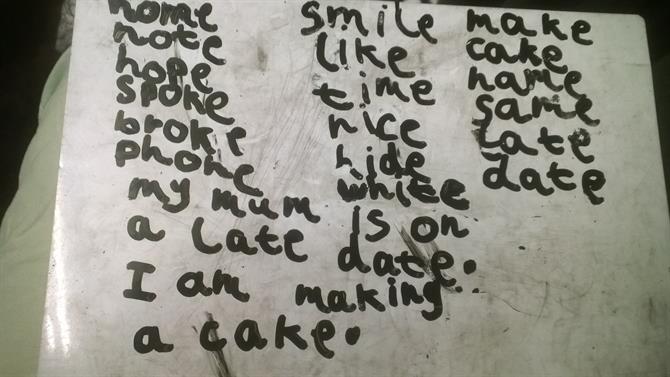 home smile make
note like cake
hope time name
spoke nice same
broke hide late
phone white date
my mum is on
a late date.
I am making
a cake.